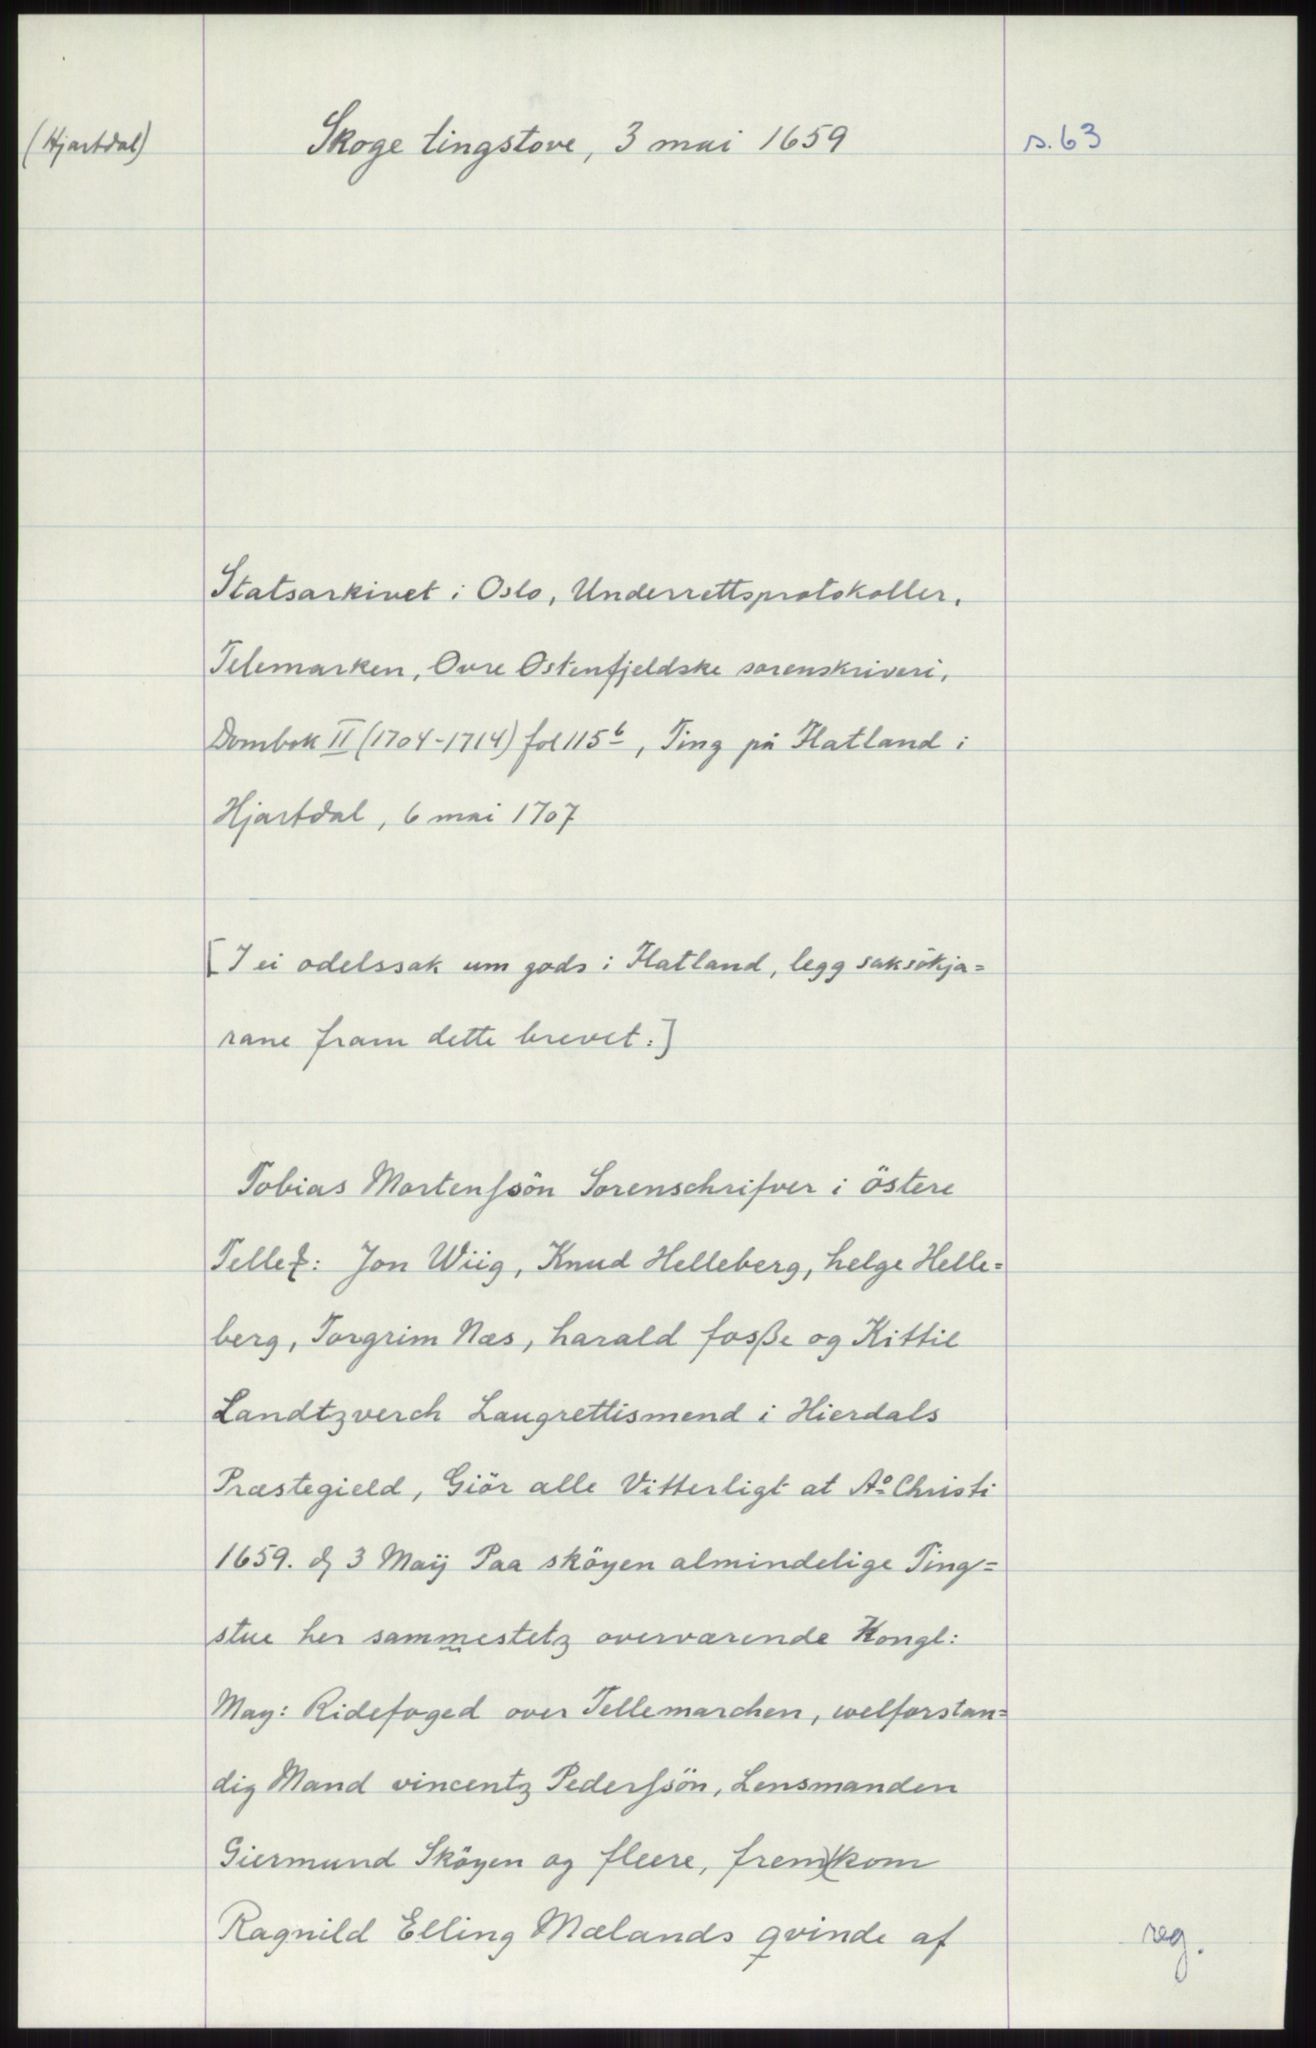 (Hjartdal) Skoge tingstove, 3 mai 1659 s.63
Statsarkivet i Oslo, Underrettsprotokoller,
Telemarken, Øvre Østenfjeldske sorenskriveri,
Dombok II (1704-1714) fol 115b, Ting på Flatland i
Hjartdal, 6 mai 1707
[I ei odelssak um gods i Flatland, legg saksökja=
rane fram dette brevet:]
Tobias Mortenssön Sorenschrifver i östere
Telle: Jon Wiig, Knud Helleberg, helge Helle=
berg, Torgrim Næs, harald fosße og Kittil
Landtzverch Laugrettismend i Hierdals
Præstegield, Giör alle Vitterligt at Ao Christi
1659. d 3 Maij Paa sköyen almindelige Ting=
stue her sammestetz overværende Kongl:
May: Ridefoged over Tellemarchen, welforstan=
dig Mand vincentz Pederssön, Lensmanden
Giermund Sköyen og fleere, fremkom
Ragnild Elling Mælands qvinde af reg.